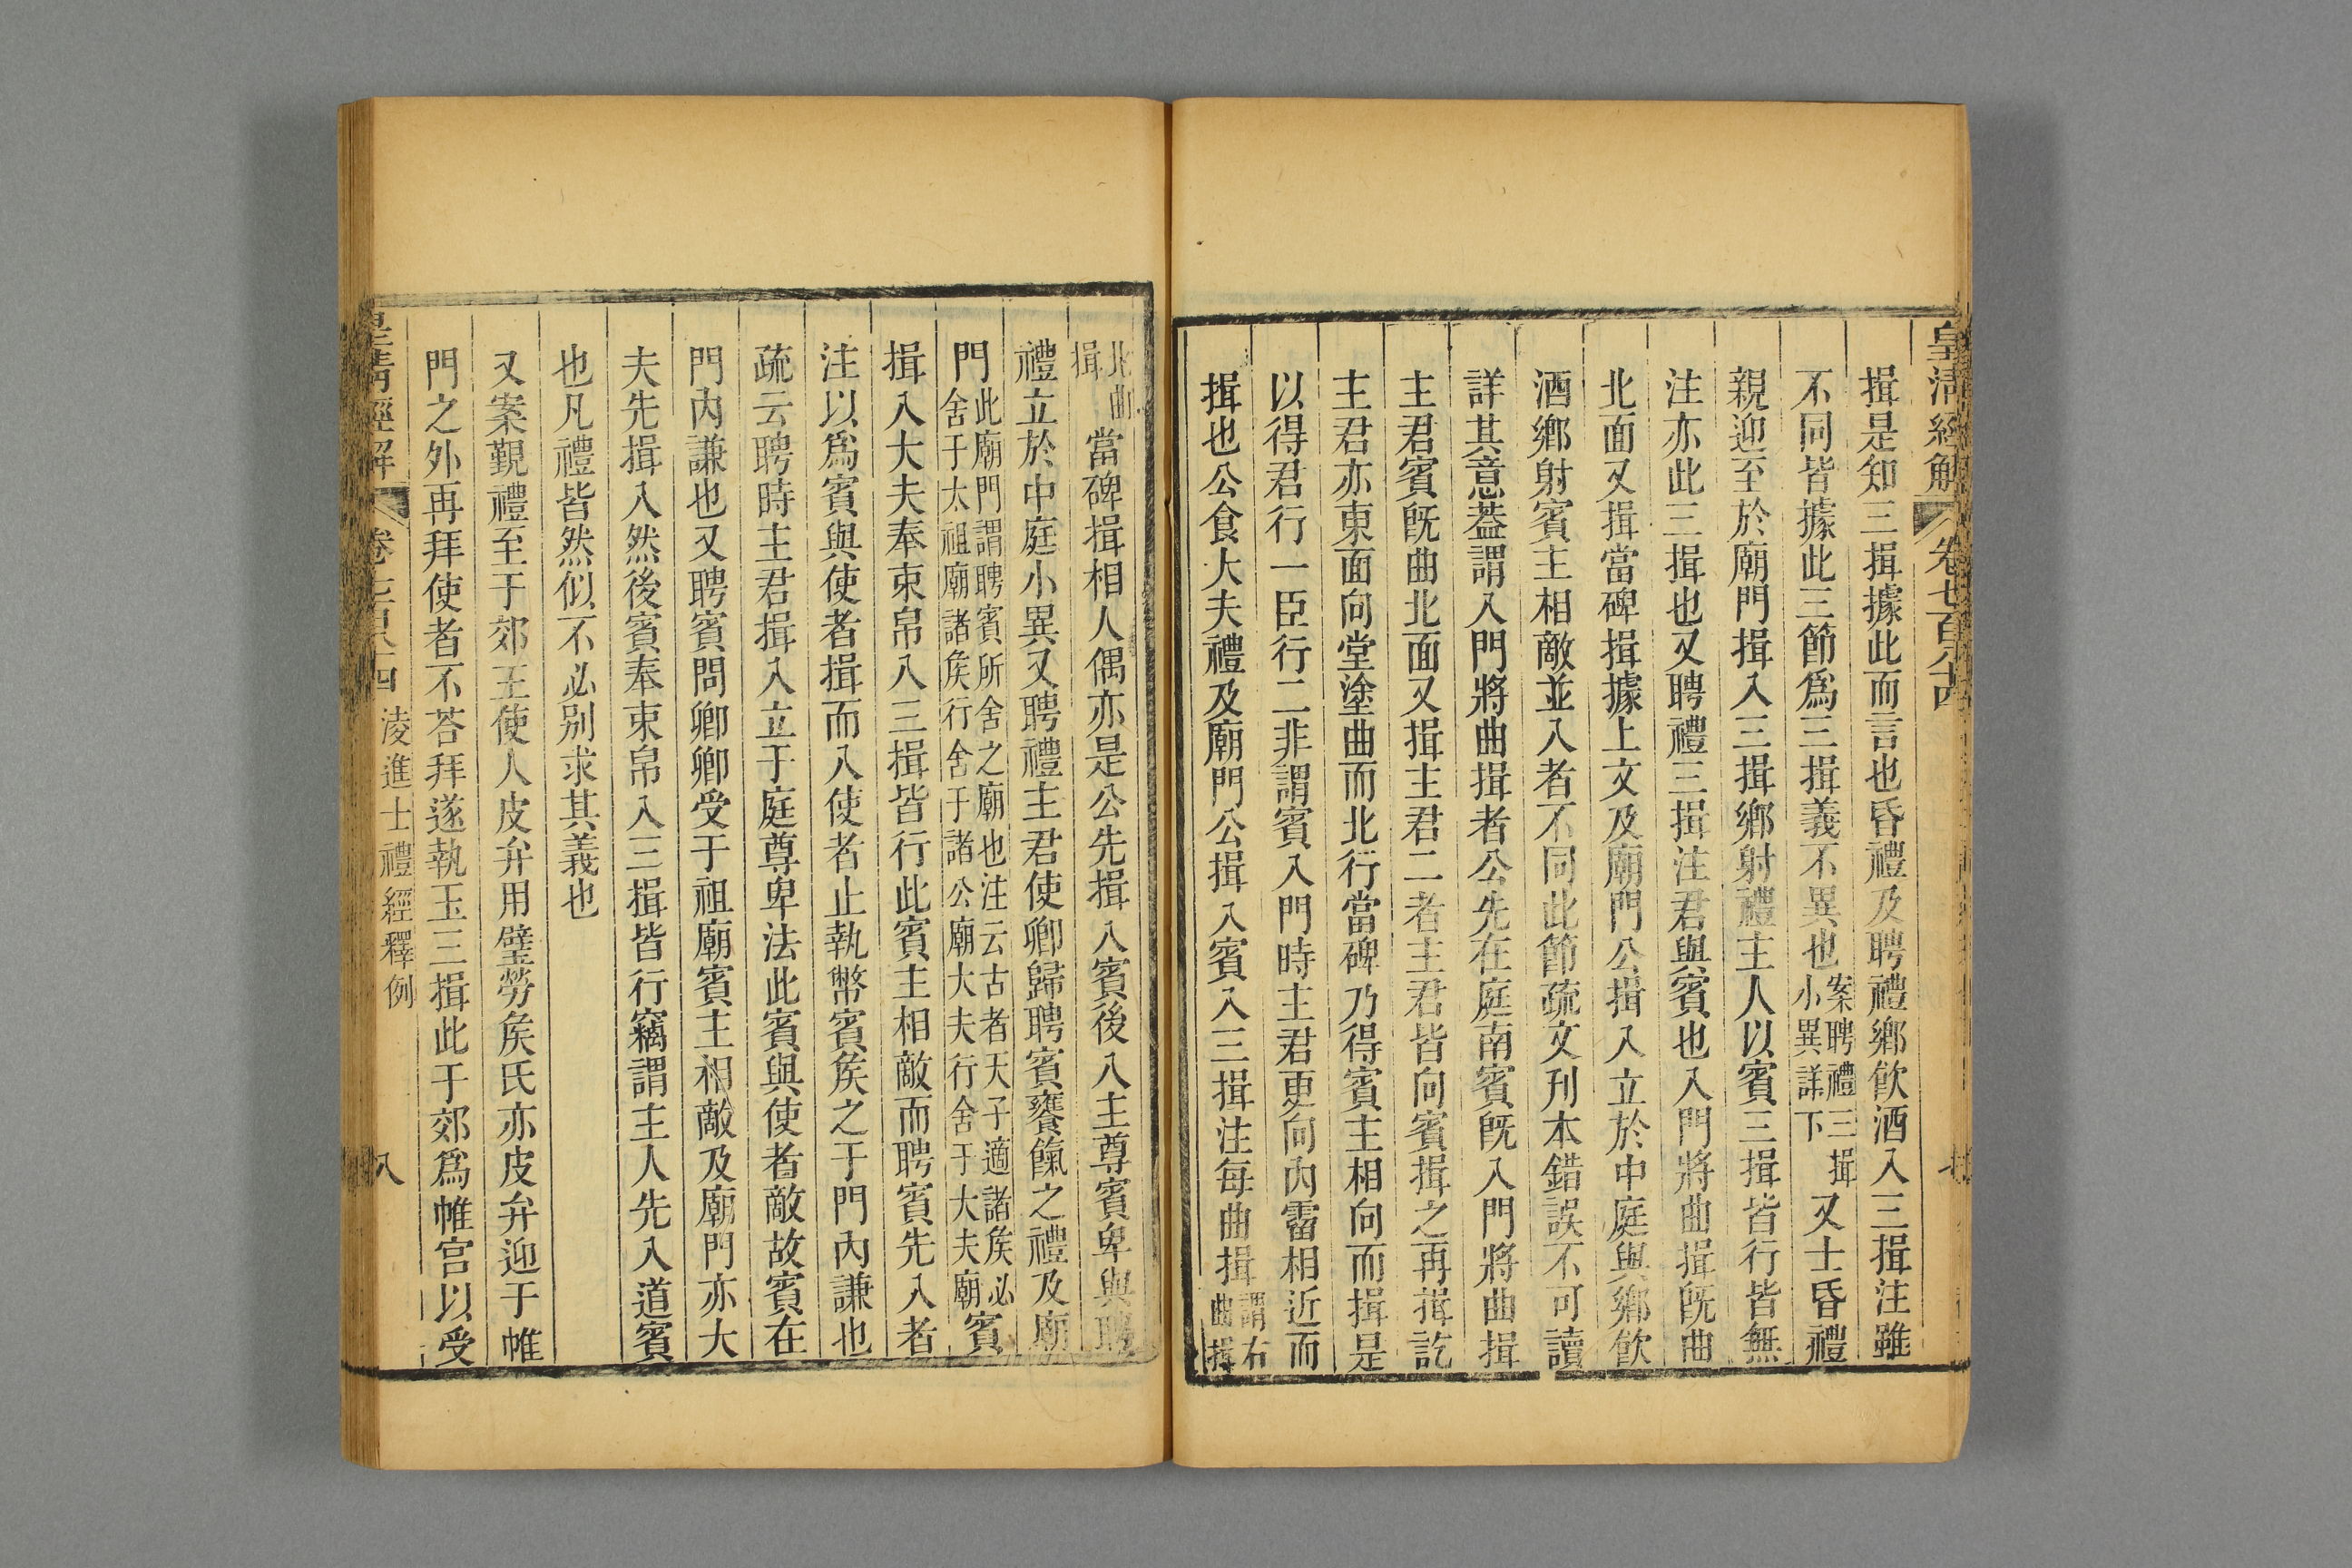 皇清經解 卷七百八十四
揖是知三揖據此而言也昏禮及聘禮鄉飮酒入三揖注雖
不同皆據此三節爲三揖義不異也案聘禮三揖小異詳下又士昏禮
親迎至於廟門揖入三揖鄉射禮主人以賓三揖皆行皆無
注亦此三揖也又聘禮三揖注君與賓也入門將曲揖旣曲
北面又揖當碑揖據上文及廟門公揖入立於中庭與鄉飮
酒鄉射賓主相敵並入者不同此節疏文刊本錯誤不可讀
詳其意葢謂入門將曲揖者公先在庭南賓旣入門將曲揖
主君賓旣曲北面又揖主君二者主君皆向賓揖之再揖訖
主君亦東面向堂塗曲而北行當碑乃得賓主相向而揖是
以得君行一臣行二非謂賓入門時主君更向內霤相近而
揖也公食大夫禮及廟門公揖入賓入三揖注每曲揖謂右曲揖
北曲揖當碑揖相人偶亦是公先揖入賓後入主尊賓卑與聘
禮立於中庭小異又聘禮主君使卿歸聘賓饔餼之禮及廟
門此廟門謂聘賓所舍之廟也注云古者天子適諸矦必舍于太祖廟諸矦行舍于諸公廟大夫行舍于大夫廟賓
揖入大夫奉束帛入三揖皆行此賓主相敵而聘賓先入者
注以爲賓與使者揖而入使者止執幣賓矦之于門內謙也
疏云聘時主君揖入立于庭尊卑法此賓與使者敵故賓在
門內謙也又聘賓問卿卿受于祖廟賓主相敵及廟門亦大
夫先揖入然後賓奉束帛入三揖皆行竊謂主人先入道賓
也凡禮皆然似不必别求其義也
又案覲禮至于郊王使人皮弁用璧勞矦氏亦皮弁迎于帷
門之外再拜使者不荅拜遂執玉三揖此于郊爲帷宫以受
皇淸經解 卷七百八十四 淩進士禮經釋例 八